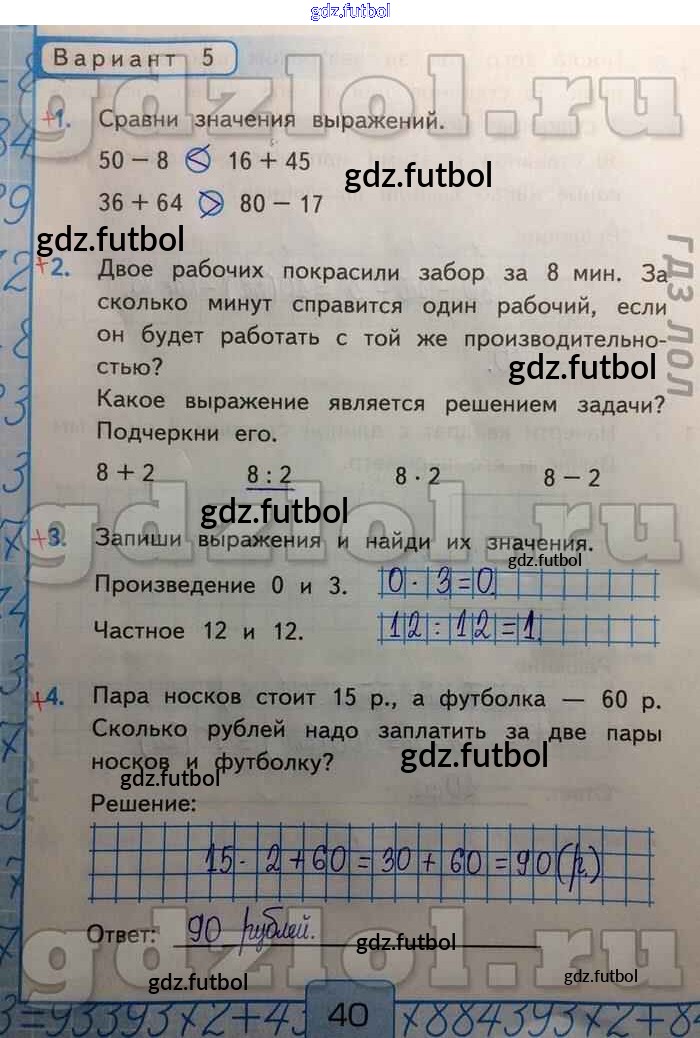 gdz.futbol
Вариант 5
gdzlol.ru
+1. Сравни значения выражений.
50 − 8 < 16 + 45
gdz.futbol
36 + 64 > 80 − 17
gdz.futbol
гдз лол
+2. Двое рабочих покрасили забор за 8 мин. За
сколько минут справится один рабочий, если
он будет работать с той же производительно-
стью?
gdz.futbol
Какое выражение является решением задачи?
Подчеркни его.
8 + 2 8 : 2 8 · 2 8 − 2
gdz.futbol
gdzlol.ru
+3. Запиши выражения и найди их значения.
gdz.futbol
Произведение 0 и 3. 0 · 3 = 0.
Частное 12 и 12. 12 : 12 = 1.
+4. Пара носков стоит 15 р., а футболка — 60 р.
Сколько рублей надо заплатить за две пары
носков и футболку?
gdz.futbol
gdz.futbol
Решение:
15 · 2 + 60 = 30 + 60 = 90 (р.)
Ответ: 90 рублей.
gdz.futbol
gdzlol.ru
gdz.futbol
gdz.futbol
40
3=93393×2+43
×884393×2+84